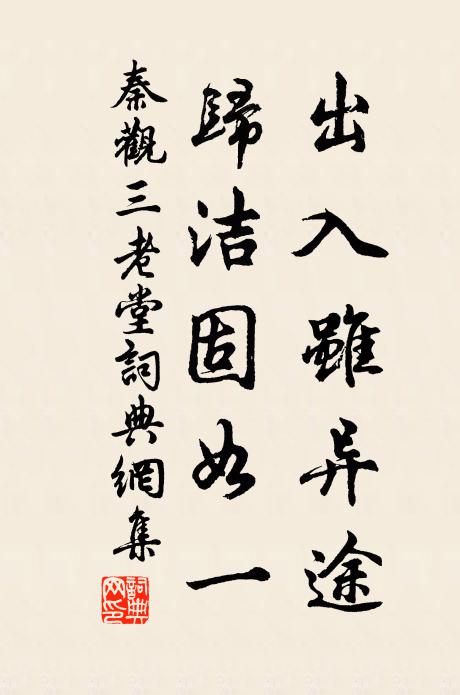 出入雖异途
歸洁固如一
秦觀三老堂詞典網集
詞典网印